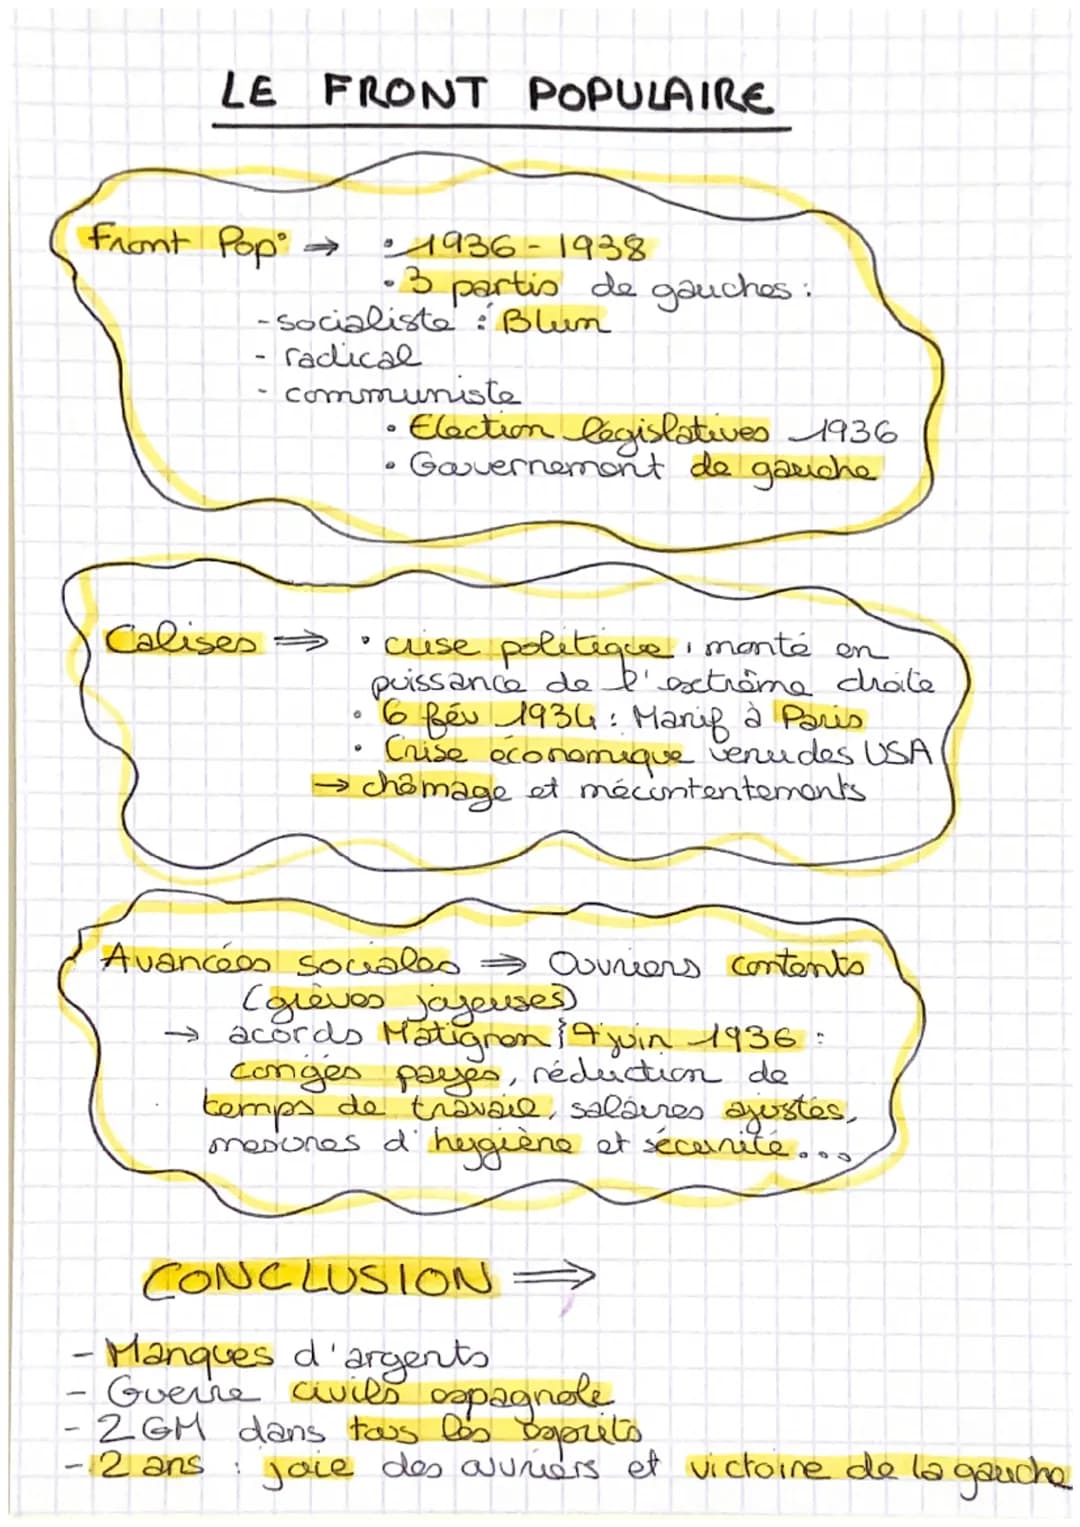 LE FRONT POPULAIRE
Front Pop° → • 1936-1938
• 3 partis de gauches :
- socialiste : Blum
- radical
- communiste
• Election législatives 1936
• Gouvernement de gauche
Causes ⇒ • crise politique, monté en
puissance de l'extrême droite
• 6 fév 1934 : Manif à Paris
• Crise économique venu des USA
→ chômage et mécontentements
Avancées sociales ⇒ Ouvriers contents
(grèves joyeuses)
→ acords Matignon 7 juin 1936 :
congés payés, réduction de
temps de travail, salaires ajustés,
mesures d'hygiène et sécurité...
CONCLUSION ⇒
- Manques d'argents
- Guerre civils espagnole
- 2GM dans tous les esprits
- 2 ans : joie des ouvriers et victoire de la gauche